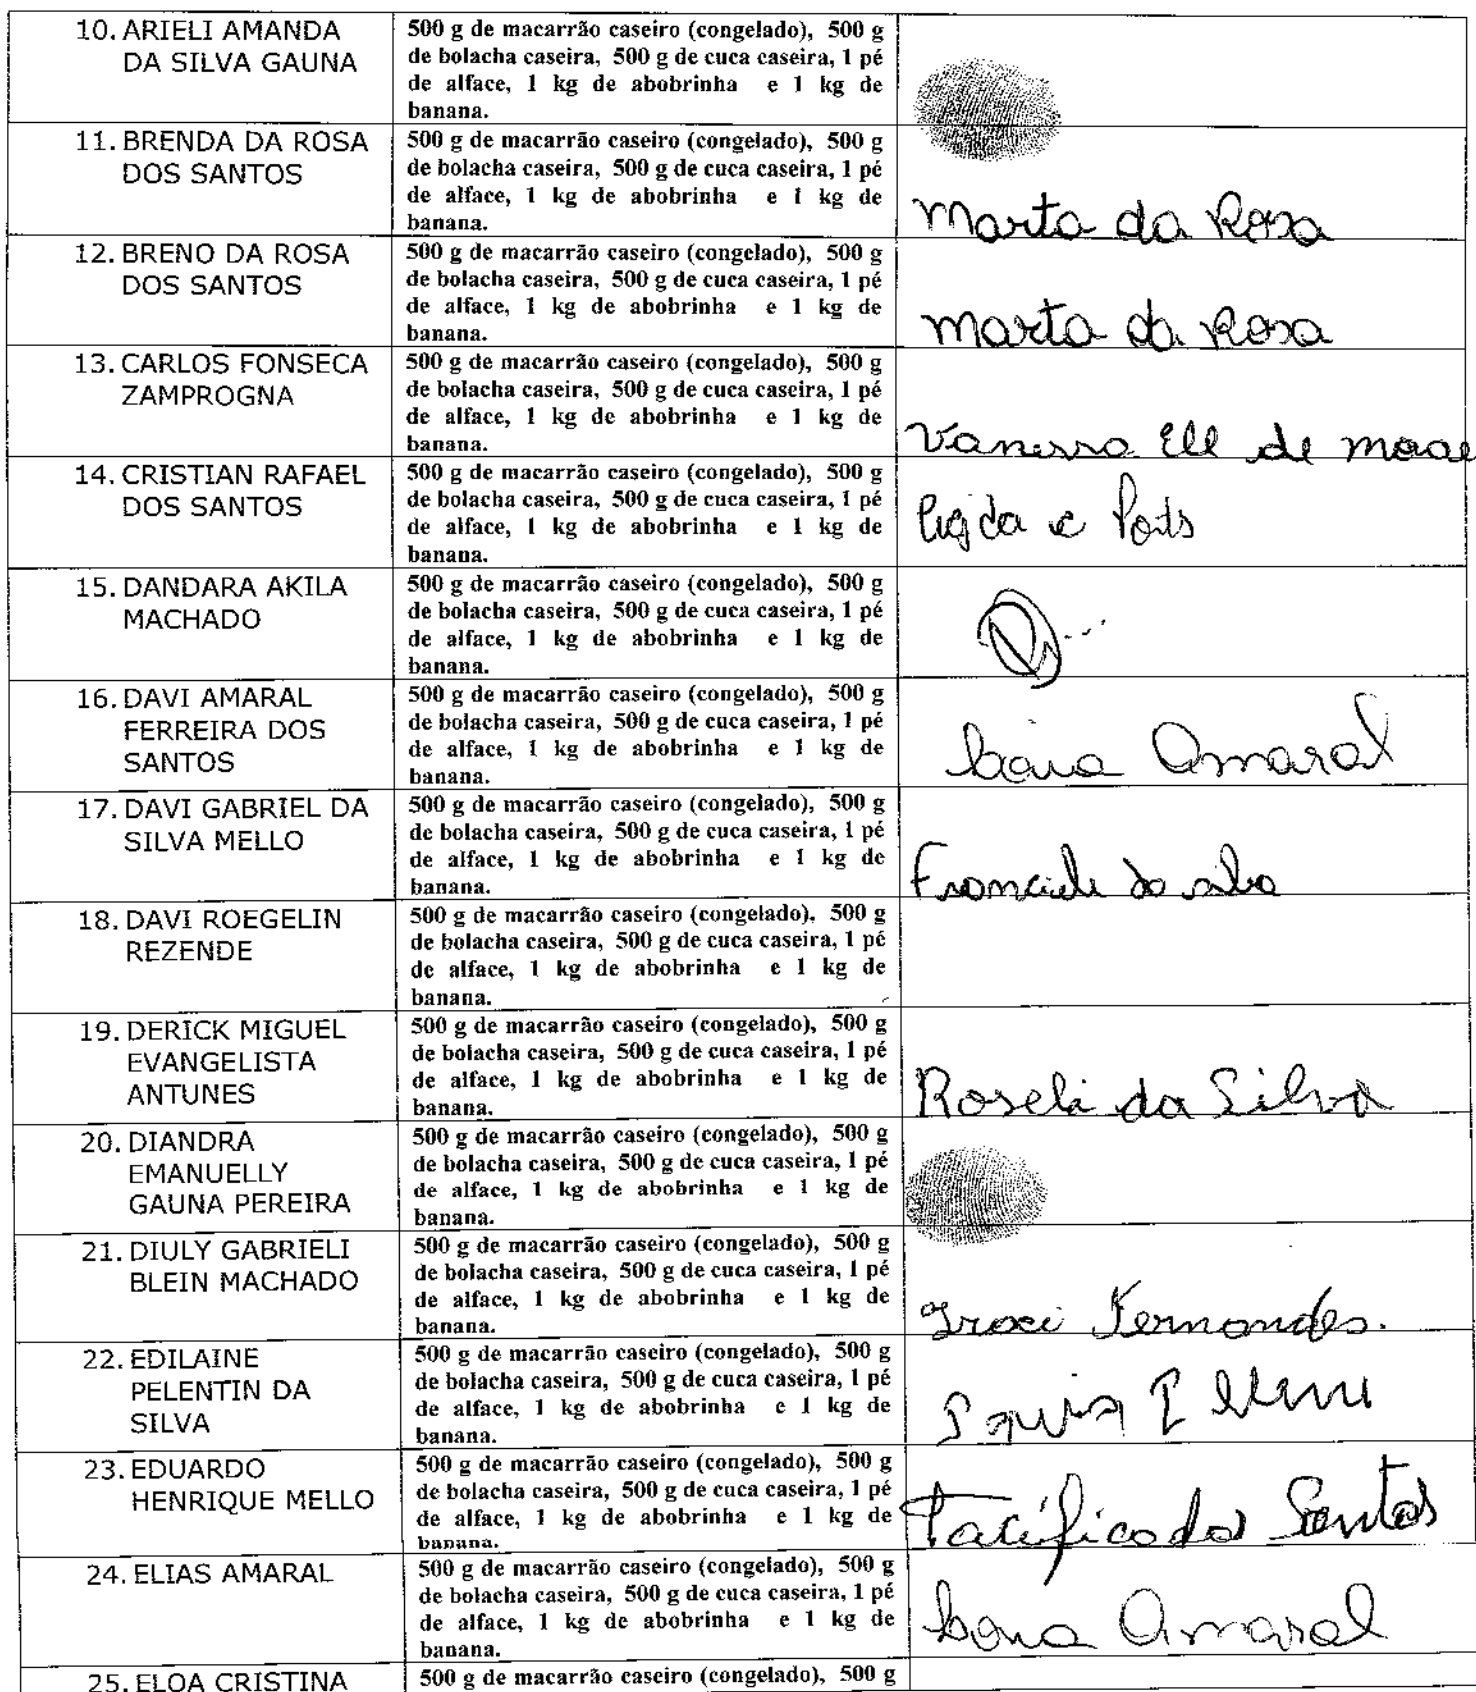 10. ARIELI AMANDA
DA SILVA GAUNA
500 g de macarrão caseiro (congelado), 500 g
de bolacha caseira, 500 g de cuca caseira, 1 pé
de alface, 1 kg de abobrinha e 1 kg de
banana.
11. BRENDA DA ROSA
DOS SANTOS
500 g de macarrão caseiro (congelado), 500 g
de bolacha caseira, 500 g de cuca caseira, 1 pé
de alface, 1 kg de abobrinha e 1 kg de
banana.
Marta da Rosa
12. BRENO DA ROSA
DOS SANTOS
500 g de macarrão caseiro (congelado), 500 g
de bolacha caseira, 500 g de cuca caseira, 1 pé
de alface, 1 kg de abobrinha e 1 kg de
banana.
Marta da Rosa
13. CARLOS FONSECA
ZAMPROGNA
500 g de macarrão caseiro (congelado), 500 g
de bolacha caseira, 500 g de cuca caseira, 1 pé
de alface, 1 kg de abobrinha e 1 kg de
banana.
Vanessa Ell de
14. CRISTIAN RAFAEL
DOS SANTOS
500 g de macarrão caseiro (congelado), 500 g
de bolacha caseira, 500 g de cuca caseira, 1 pé
de alface, 1 kg de abobrinha e 1 kg de
banana.
15. DANDARA AKILA
MACHADO
500 g de macarrão caseiro (congelado), 500 g
de bolacha caseira, 500 g de cuca caseira, 1 pé
de alface, 1 kg de abobrinha e 1 kg de
banana.
16. DAVI AMARAL
FERREIRA DOS
SANTOS
500 g de macarrão caseiro (congelado), 500 g
de bolacha caseira, 500 g de cuca caseira, 1 pé
de alface, 1 kg de abobrinha e 1 kg de
banana.
Amaral
17. DAVI GABRIEL DA
SILVA MELLO
500 g de macarrão caseiro (congelado), 500 g
de bolacha caseira, 500 g de cuca caseira, 1 pé
de alface, 1 kg de abobrinha e 1 kg de
banana.
Franciele da silva
18. DAVI ROEGELIN
REZENDE
500 g de macarrão caseiro (congelado), 500 g
de bolacha caseira, 500 g de cuca caseira, 1 pé
de alface, 1 kg de abobrinha e 1 kg de
banana.
19. DERICK MIGUEL
EVANGELISTA
ANTUNES
500 g de macarrão caseiro (congelado), 500 g
de bolacha caseira, 500 g de cuca caseira, 1 pé
de alface, 1 kg de abobrinha e 1 kg de
banana.
Roseli da Silva
20. DIANDRA
EMANUELLY
GAUNA PEREIRA
500 g de macarrão caseiro (congelado), 500 g
de bolacha caseira, 500 g de cuca caseira, 1 pé
de alface, 1 kg de abobrinha e 1 kg de
banana.
21. DIULY GABRIELI
BLEIN MACHADO
500 g de macarrão caseiro (congelado), 500 g
de bolacha caseira, 500 g de cuca caseira, 1 pé
de alface, 1 kg de abobrinha e 1 kg de
banana.
Iraci Fernandes.
22. EDILAINE
PELENTIN DA
SILVA
500 g de macarrão caseiro (congelado), 500 g
de bolacha caseira, 500 g de cuca caseira, 1 pé
de alface, 1 kg de abobrinha e 1 kg de
banana.
23. EDUARDO
HENRIQUE MELLO
500 g de macarrão caseiro (congelado), 500 g
de bolacha caseira, 500 g de cuca caseira, 1 pé
de alface, 1 kg de abobrinha e 1 kg de
banana.
Pacífico dos Santos
24. ELIAS AMARAL
500 g de macarrão caseiro (congelado), 500 g
de bolacha caseira, 500 g de cuca caseira, 1 pé
de alface, 1 kg de abobrinha e 1 kg de
banana.
Amaral
25. ELOA CRISTINA
500 g de macarrão caseiro (congelado), 500 g